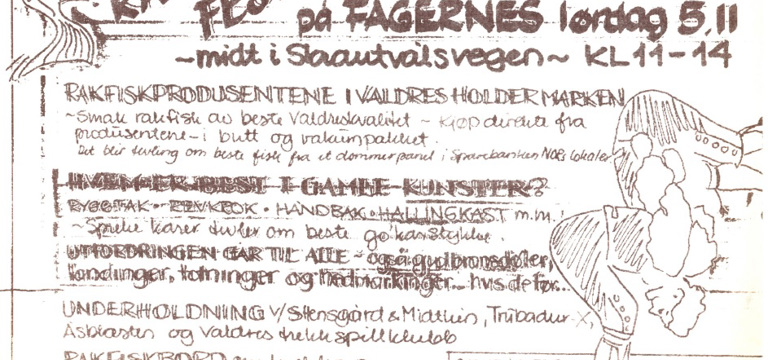 på FAGERNES lørdag 5.11
~midt i Skrautvålsvegen~ KL 11-14
RAKFISKPRODUSENTENE I VALDRES HOLDER MARKEN
~Smak rakfisk av beste Valdreskvalitet ~ Kjøp direkte fra
produsentene - i butt og vakumpakket.
Det blir kåring om beste fisk fra et dommerpanel i Sparebanken NORs lokaler
HVEM ER BEST I GAMLE KUNSTER?
RYGGTAK · REVKROK · HANDBAK · HALLINGKAST m.m.
~ Spreke karer om beste
UTFORDRINGEN GÅR TIL ALLE - også gudbrandsdøler,
landinger, totninger og hedmarkinger... hvis de tør...
UNDERHOLDNING v/ Stensgård & Trubadur-X,
og Valdres trekkspillklubb
RAKFISKBORD